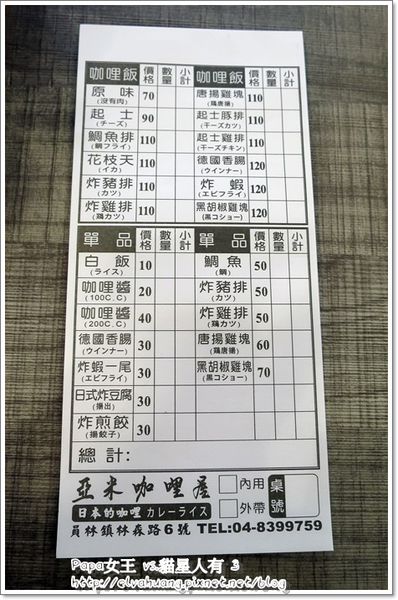 咖哩飯 價格 數量 小計 咖哩飯 價格 數量 小計
原味 (沒有肉) 70 唐揚雞塊 (鶏唐揚) 110
起士 (チーズ) 90 起士豚排 (チーズカツ) 110
鯛魚排 (鯛フライ) 110 起士雞排 (チーズチキン) 110
花枝天 (イカ) 110 德國香腸 (ウインナー) 120
炸豬排 (カツ) 110 炸蝦 (エビフライ) 120
炸雞排 (鶏カツ) 110 黑胡椒雞塊 (黒コショー) 120
單品 價格 數量 小計 單品 價格 數量 小計
白飯 (ライス) 10 鯛魚 (鯛) 50
咖哩醬 (100C.C) 20 炸豬排 (カツ) 50
咖哩醬 (200C.C) 40 炸雞排 (鶏カツ) 50
德國香腸 (ウインナー) 30 唐揚雞塊 (鶏唐揚) 60
炸蝦一尾 (エビフライ) 30 黑胡椒雞塊 (黒コショー) 70
日式炸豆腐 (揚出) 30
炸煎餃 (揚餃子) 30
總計:
亞米咖哩屋 內用 桌號
日本的咖哩 カレーライス 外帶
員林鎮林森路6號 TEL:04-8399759
Papa女王 vs.貓星人有 3
http://elvahuang.pixnet.net/blog